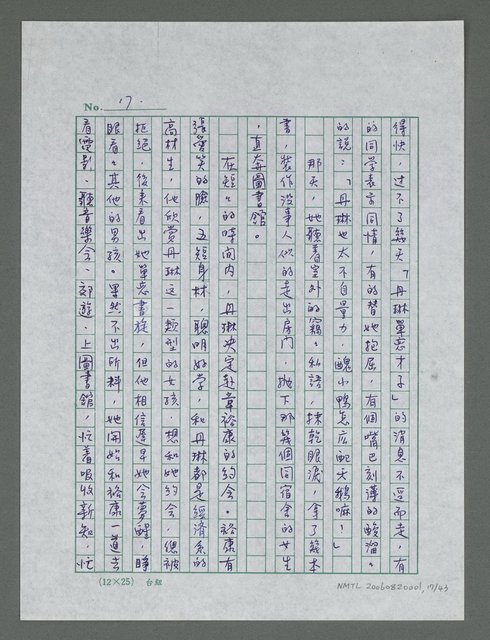 No. 17.
得快，过不了幾天「丹琳單恋才子」的消息不逕而走，有
的同学表示同情，有的替她抱屈，有個嘴巴刻薄的酸溜溜
的說：「丹琳也太不自量力，醜小鴨怎麼配天鵝嘛！」
那天，她聽着室外的竊竊私語，抹乾眼淚，拿了幾本
書，裝作沒事人似的走出房門，拋下那幾個同宿舍的女生
，直奔圖書館。
在短短的時間内，丹琳决定赴韋裕康的約会。裕康有
張愛笑的臉，五短身材，聰明好学，和丹琳都是經濟系的
高材生，他欣赏丹琳这一類型的女孩，想和她約会，總被
拒絕，後來看出她單恋書旋，但他相信遲早她会夢醒，睜
眼看看其他的男孩。果然不出所料，她開始和裕康一道去
看電影、聽音樂会、郊遊、上圖書館，忙着吸收新知，忙
(12×25) 台組
NMTL 20060820001, 17/43